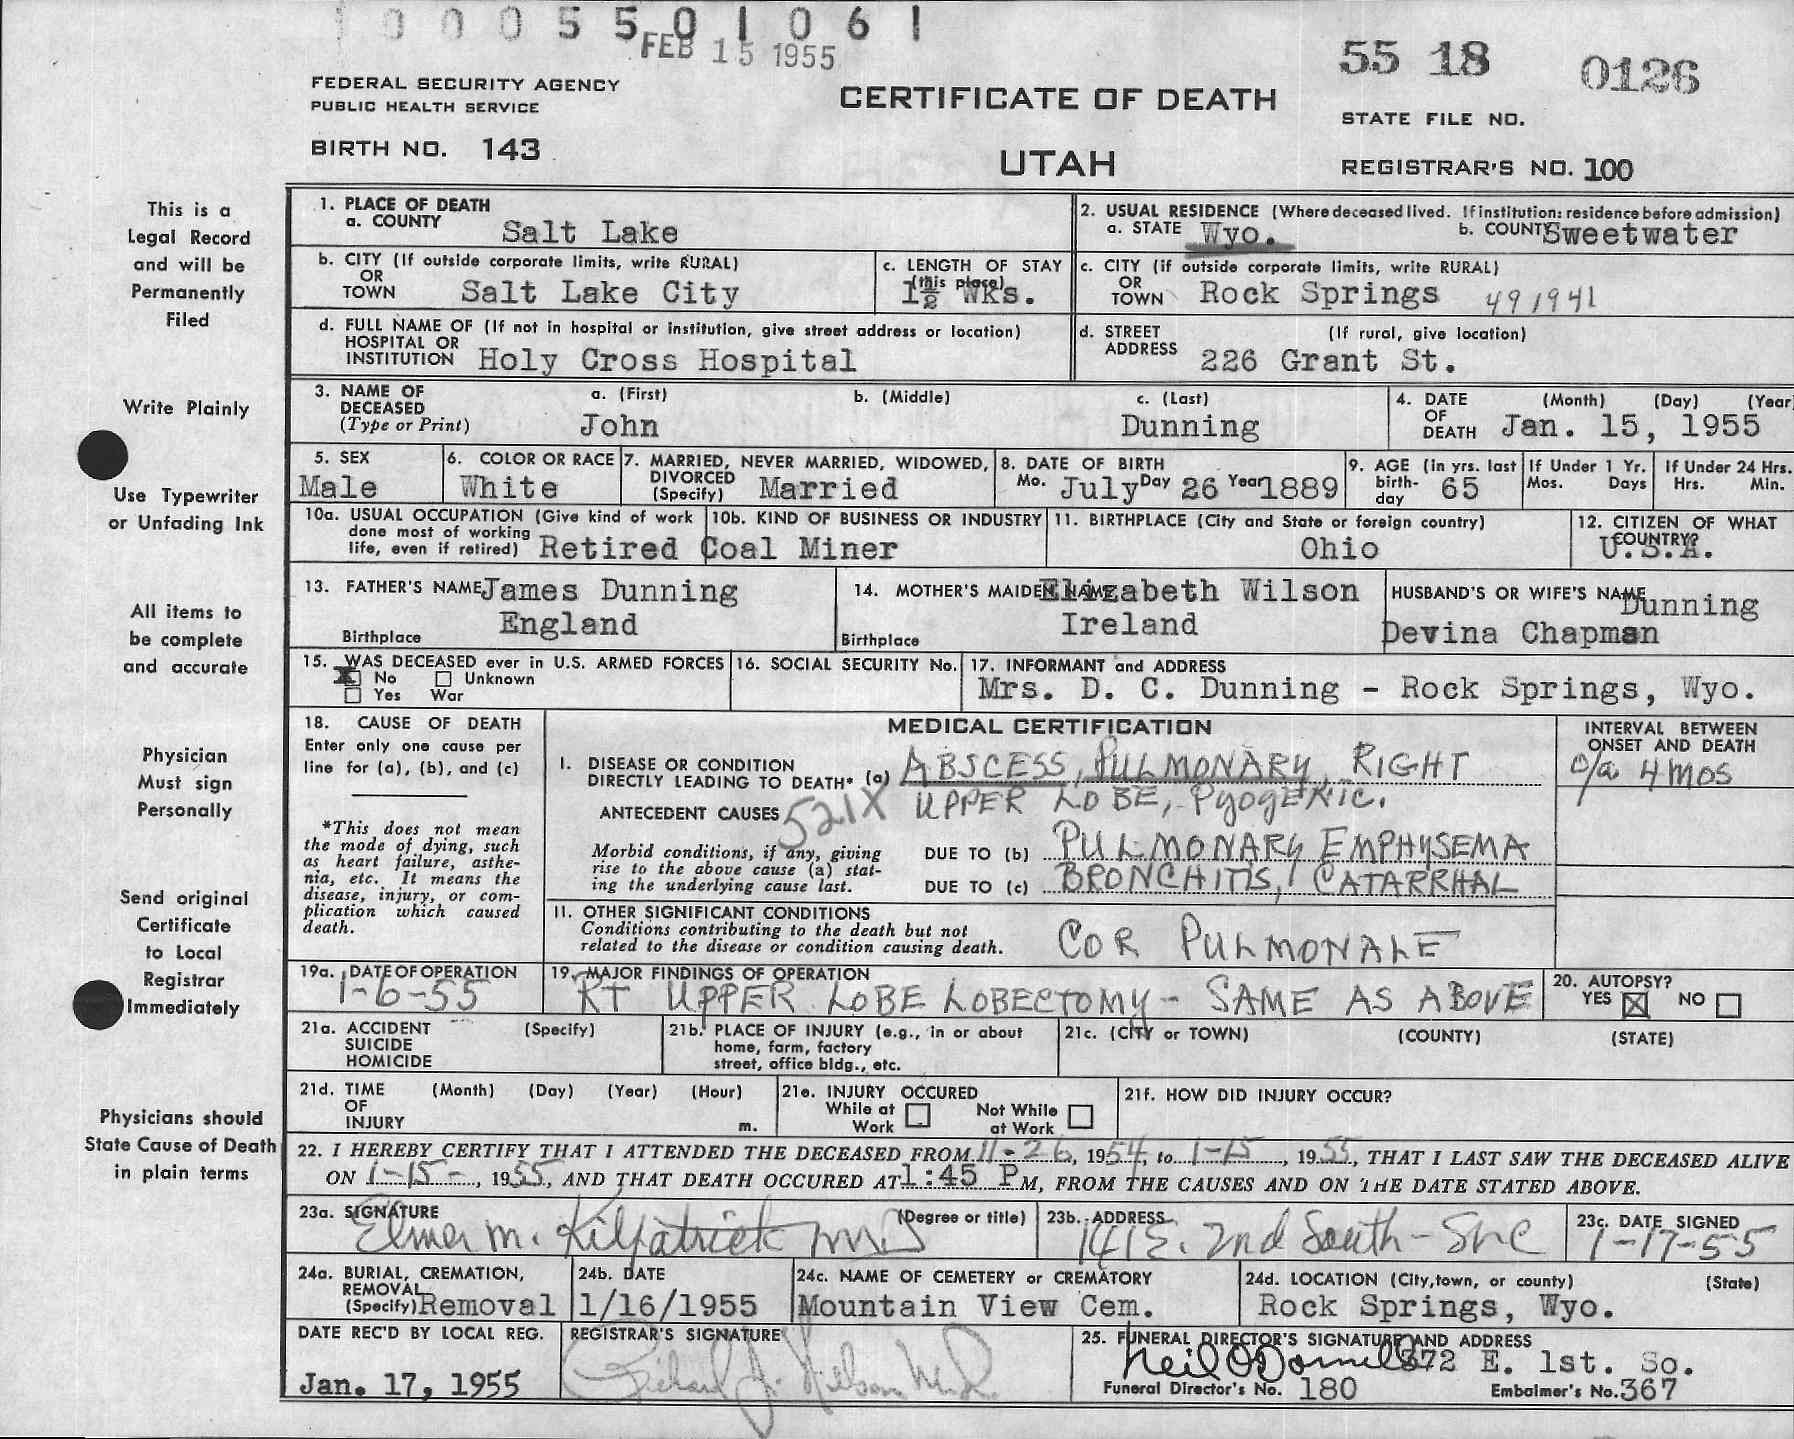 1 0 0 0 5 5 0 1 0 6 1
FEB 15 1955
55 18 0126
FEDERAL SECURITY AGENCY
PUBLIC HEALTH SERVICE
CERTIFICATE OF DEATH
STATE FILE NO.
BIRTH NO. 143
UTAH
REGISTRAR'S NO. 100
This is a
Legal Record
and will be
Permanently
Filed
Write Plainly
Use Typewriter
or Unfading Ink
All items to
be complete
and accurate
Physician
Must sign
Personally
Send original
Certificate
to Local
Registrar
Immediately
Physicians should
State Cause of Death
in plain terms
1. PLACE OF DEATH
a. COUNTY Salt Lake
2. USUAL RESIDENCE (Where deceased lived. If institution: residence before admission)
a. STATE Wyo. b. COUNTY Sweetwater
b. CITY (If outside corporate limits, write RURAL)
OR
TOWN Salt Lake City
c. LENGTH OF STAY
(this place)
1½ Wks.
c. CITY (if outside corporate limits, write RURAL)
OR
TOWN Rock Springs 491941
d. FULL NAME OF (If not in hospital or institution, give street address or location)
HOSPITAL OR
INSTITUTION Holy Cross Hospital
d. STREET (If rural, give location)
ADDRESS 226 Grant St.
3. NAME OF a. (First) b. (Middle) c. (Last)
DECEASED
(Type or Print) John Dunning
4. DATE (Month) (Day) (Year
OF
DEATH Jan. 15, 1955
5. SEX
Male
6. COLOR OR RACE
White
7. MARRIED, NEVER MARRIED, WIDOWED,
DIVORCED
(Specify) Married
8. DATE OF BIRTH
Mo. July Day 26 Year 1889
9. AGE (in yrs. last
birth-
day 65
If Under 1 Yr.
Mos. Days
If Under 24 Hrs.
Hrs. Min.
10a. USUAL OCCUPATION (Give kind of work
done most of working
life, even if retired) Retired
10b. KIND OF BUSINESS OR INDUSTRY
Coal Miner
11. BIRTHPLACE (City and State or foreign country)
Ohio
12. CITIZEN OF WHAT
COUNTRY?
U.S.A.
13. FATHER'S NAME James Dunning
Birthplace England
14. MOTHER'S MAIDEN NAME Elizabeth Wilson
Birthplace Ireland
HUSBAND'S OR WIFE'S NAME Dunning
Devina Chapman
15. WAS DECEASED ever in U.S. ARMED FORCES
X No Unknown
Yes War
16. SOCIAL SECURITY No.
17. INFORMANT and ADDRESS
Mrs. D. C. Dunning - Rock Springs, Wyo.
18. CAUSE OF DEATH
Enter only one cause per
line for (a), (b), and (c)
*This does not mean
the mode of dying, such
as heart failure, asthe-
nia, etc. It means the
disease, injury, or com-
plication which caused
death.
MEDICAL CERTIFICATION
INTERVAL BETWEEN
ONSET AND DEATH
I. DISEASE OR CONDITION
DIRECTLY LEADING TO DEATH* (a) ABSCESS, PULMONARY, RIGHT
4 MOS
ANTECEDENT CAUSES 521X UPPER LOBE, PYOGENIC.
Morbid conditions, if any, giving
rise to the above cause (a) stat-
ing the underlying cause last.
DUE TO (b) PULMONARY EMPHYSEMA
DUE TO (c) BRONCHITIS, CATARRHAL
II. OTHER SIGNIFICANT CONDITIONS
Conditions contributing to the death but not
related to the disease or condition causing death.
COR PULMONALE
19a. DATE OF OPERATION
1-6-55
19. MAJOR FINDINGS OF OPERATION
RT UPPER LOBE LOBECTOMY - SAME AS ABOVE
20. AUTOPSY?
YES X NO
21a. ACCIDENT (Specify)
SUICIDE
HOMICIDE
21b. PLACE OF INJURY (e.g., in or about
home, farm, factory
street, office bldg., etc.
21c. (CITY or TOWN) (COUNTY) (STATE)
21d. TIME (Month) (Day) (Year) (Hour)
OF
INJURY m.
21e. INJURY OCCURED
While at Work Not While at Work
21f. HOW DID INJURY OCCUR?
22. I HEREBY CERTIFY THAT I ATTENDED THE DECEASED FROM 11-26, 1954, to 1-15, 1955, THAT I LAST SAW THE DECEASED ALIVE
ON 1-15-, 1955, AND THAT DEATH OCCURED AT 1:45 P M, FROM THE CAUSES AND ON THE DATE STATED ABOVE.
23a. SIGNATURE (Degree or title)
Elmer M. Kilpatrick M.D
23b. ADDRESS
141 E. 2nd South - SLC
23c. DATE SIGNED
1-17-55
24a. BURIAL, CREMATION,
REMOVAL
(Specify) Removal
24b. DATE
1/16/1955
24c. NAME OF CEMETERY or CREMATORY
Mountain View Cem.
24d. LOCATION (City, town, or county) (State)
Rock Springs, Wyo.
DATE REC'D BY LOCAL REG.
Jan. 17, 1955
REGISTRAR'S SIGNATURE
Richard J. Nelson M.D.
25. FUNERAL DIRECTOR'S SIGNATURE AND ADDRESS
Neil O'Donnell 372 E. 1st. So.
Funeral Director's No. 180 Embalmer's No. 367